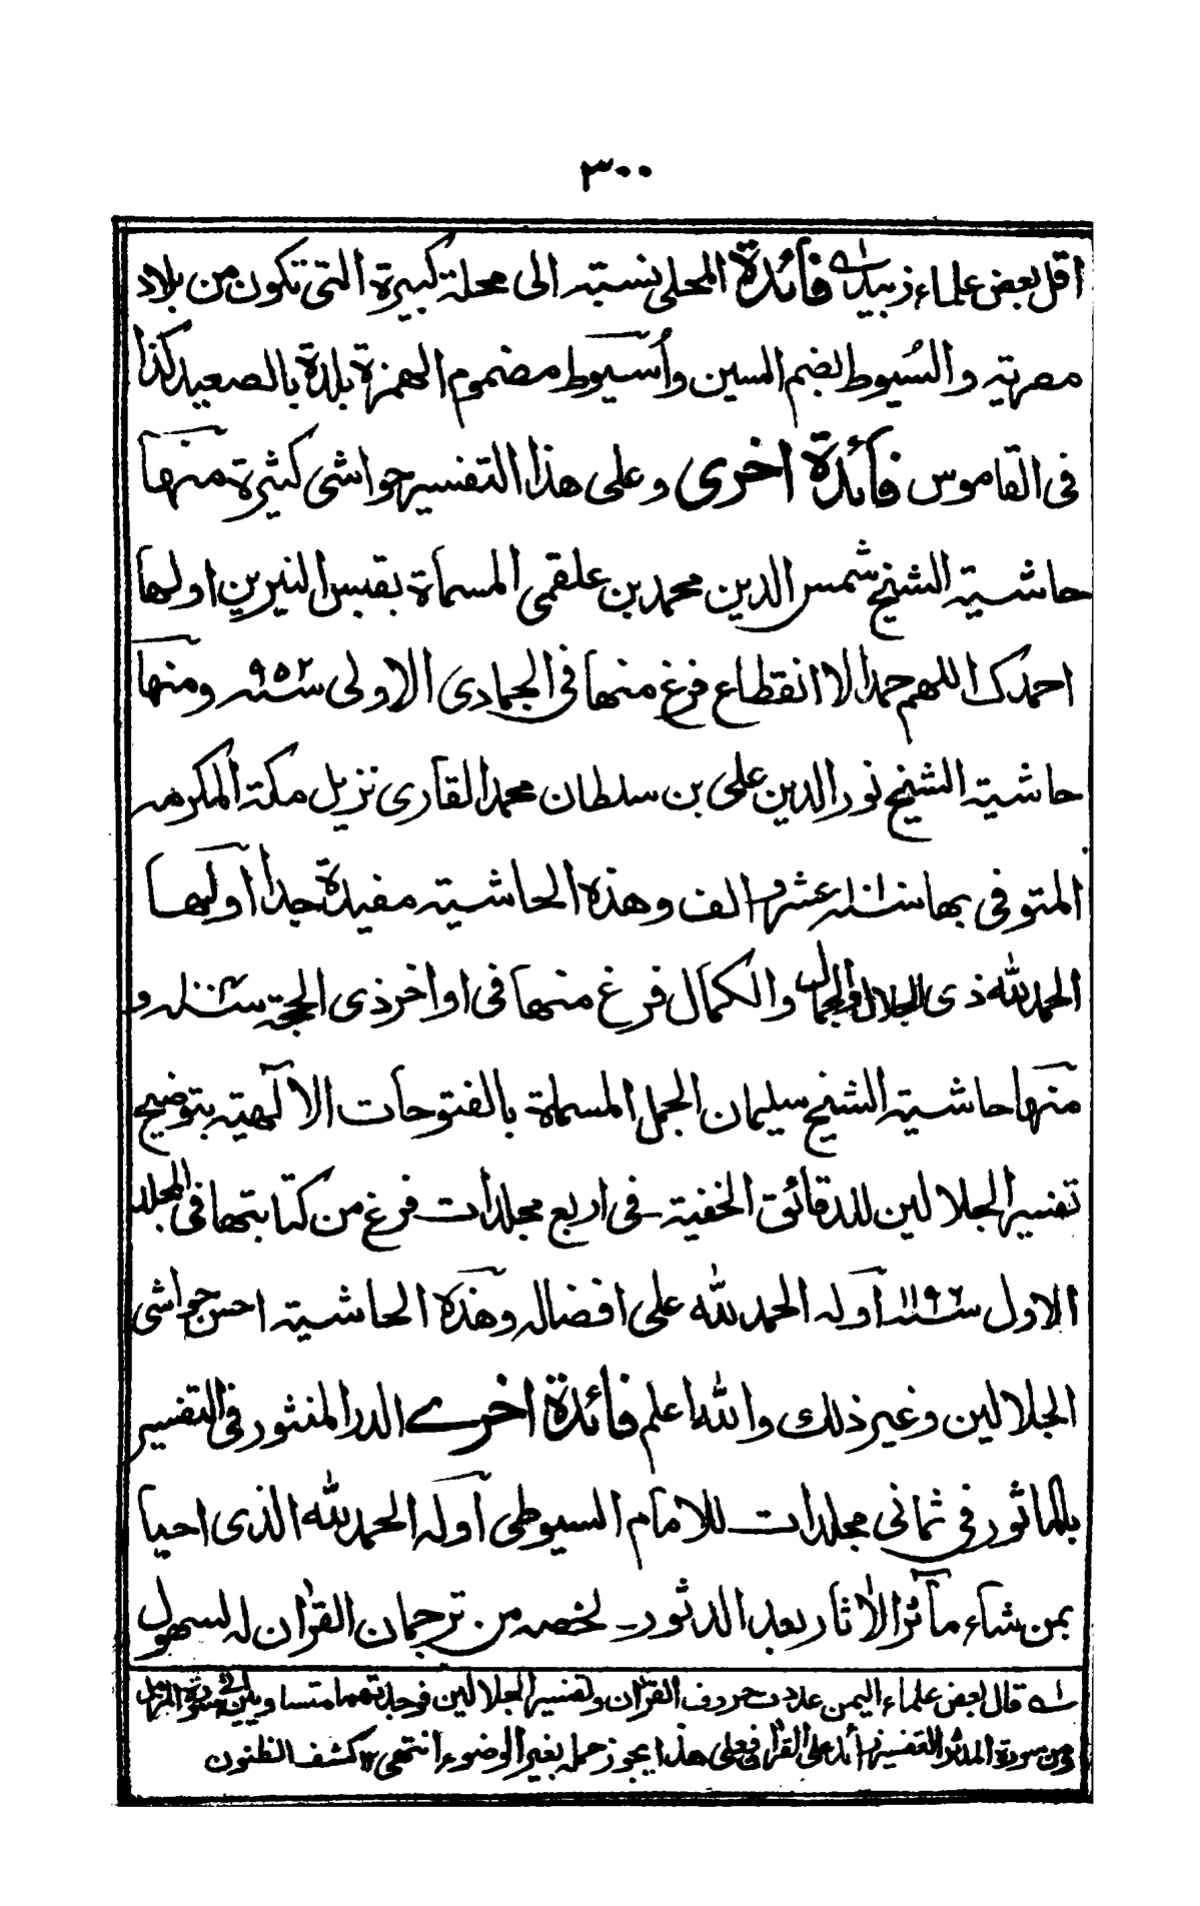 ٣٠٠
اقل بعض علماء زبيد فائدة المحلى نسبته الى محلة كبيرة التى تكون من بلاد
مصرية والسُيوط بضم السين واُسيوط مضموم الهمزة بلدة بالصعيد كذا
فى القاموس فائدة اخرى وعلى هذا التفسير حواشى كثيرة منها
حاشية الشيخ شمس الدين محمد بن علقمى المسماة بقبس النيرين اولها
احمدك اللهم حمدا لا انقطاع فرغ منها فى الجمادى الاولى سنه ٩٥٢ ومنها
حاشية الشيخ نور الدين على بن سلطان محمد القارى نزيل مكة المكرمه
المتوفى بها سنه عشر والف وهذه الحاشية مفيدة جدا اولها
الحمد لله ذى الجلال والجمال والكمال فرغ منها فى اواخر ذى الحجة سنه و
منها حاشية الشيخ سليمان الجمل المسماة بالفتوحات الالهيته بتوضيح
تفسير الجلالين للدقائق الخفية فى اربع مجلدات فرغ من كتابتها فى المجلد
الاول سنه ١١٩٦ اوله الحمد لله على افضاله وهذه الحاشية احسن حواشى
الجلالين وغير ذلك والله اعلم فائدة اخرى الدر المنثور فى التفسير
بالماثور فى ثمانى مجلدات للامام السيوطى اوله الحمد لله الذى احيا
بمن شاء مآثر الاثار بعد الدثور لخصه من ترجمان القران له لسهول
قال بعض علماء اليمن عددت حروف القران وتفسير الجلالين فوجدتهما متساويين الى سورة المزمل
ومن سورة المدثر التفسير زائد على القران فعلى هذا يجوز حمله بغير الوضوء انتهى ١٢ كشف الظنون